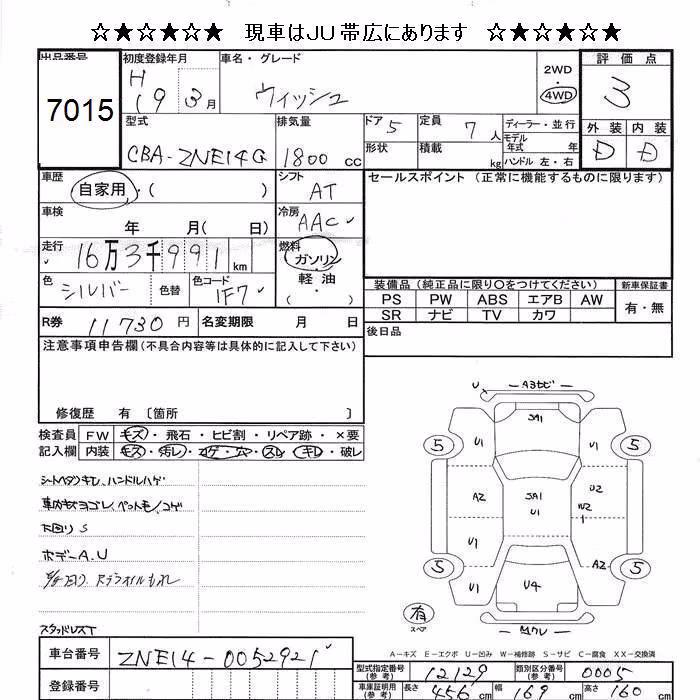 ☆★☆★☆★ 現車はJU帯広にあります ☆★☆★☆★
出品番号 7015
初度登録年月 H19 3月
車名・グレード ウィッシュ
2WD ・ 4WD
評価点 3
外装 D 内装 D
型式 CBA-ZNE14G
排気量 1800 cc
ドア 5
定員 7人
形状
積載 kg
ディーラー・並行
モデル年式 年
ハンドル 左・右
車歴 自家用・( )
シフト AT
セールスポイント (正常に機能するものに限ります)
車検 年 月( 日)
冷房 AAC
走行 16万3千991 km
燃料 ガソリン・軽油・( )
色 シルバー 色替 色コード 1F7
装備品(純正品に限り○をつけてください) 新車保証書
PS PW ABS エアB AW 有・無
SR ナビ TV カワ
R券 11730 円 名変期限 月 日
後日品
注意事項申告欄(不具合内容等は具体的に記入して下さい)
修復歴 有 〔箇所 〕
検査員記入欄
FW キズ・飛石・ヒビ割・リペア跡・×要
内装 キズ・汚レ・コゲ・穴・スレ・キレ・破レ
シートヘタリキレ、ハンドルハゲ
車内キズヨゴレ、ペット毛、コゲ
下回りS
ボデーA、U
スタッドレスT
U Aヨビ
SA1
U1 U1
5 5
A2 SA1 U1 U2 W2
U1 U4 A2
5 5
U1
有 スペア
A-キズ E-エクボ U-凹み W-補修跡 S-サビ C-腐食 XX-交換済
車台番号 ZNE14-0052921
登録番号
型式指定番号(参考) 12129 類別区分番号(参考) 0005
車庫証明用(参考) 長さ 456 cm 幅 169 cm 高さ 160 cm